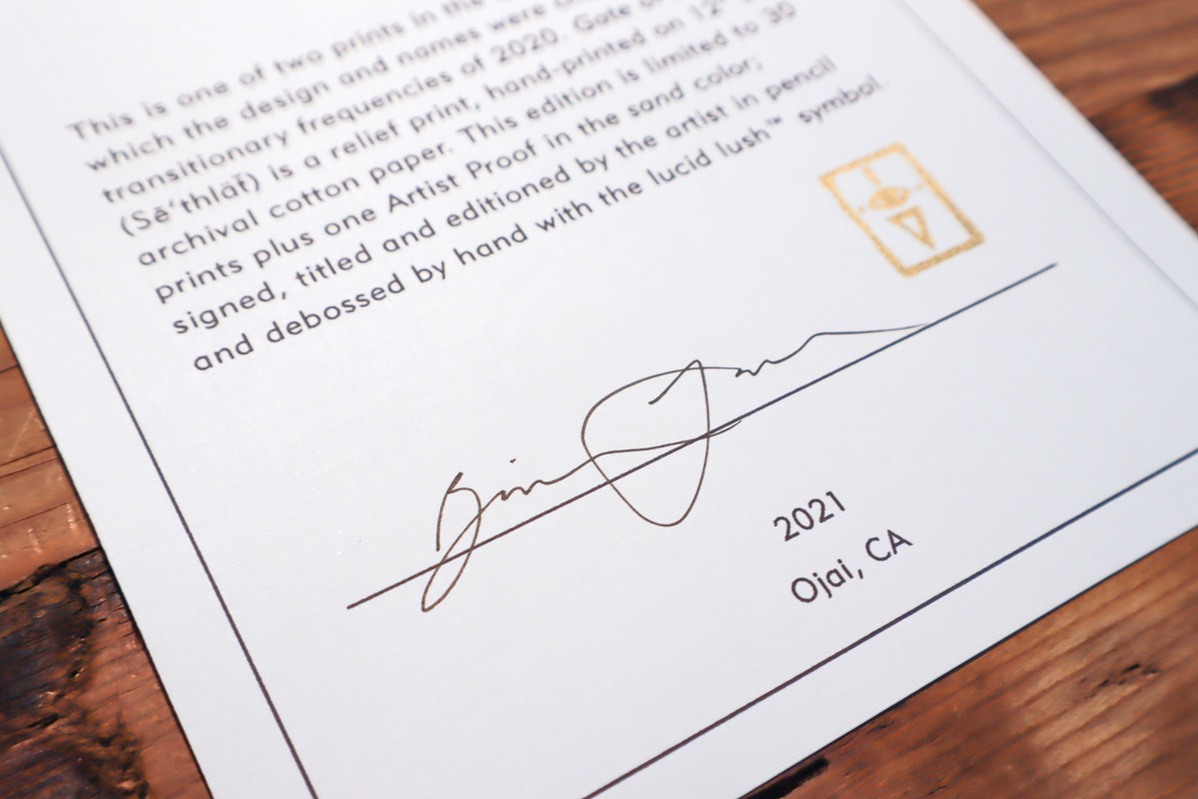 This is one of two prints in the
which the design and names were
transitionary frequencies of 2020. Gate
(Sē′thlăt) is a relief print, hand-printed on 12"
archival cotton paper. This edition is limited to 30
prints plus one Artist Proof in the sand color;
signed, titled and editioned by the artist in pencil
and debossed by hand with the lucid lush™ symbol.
2021
Ojai, CA